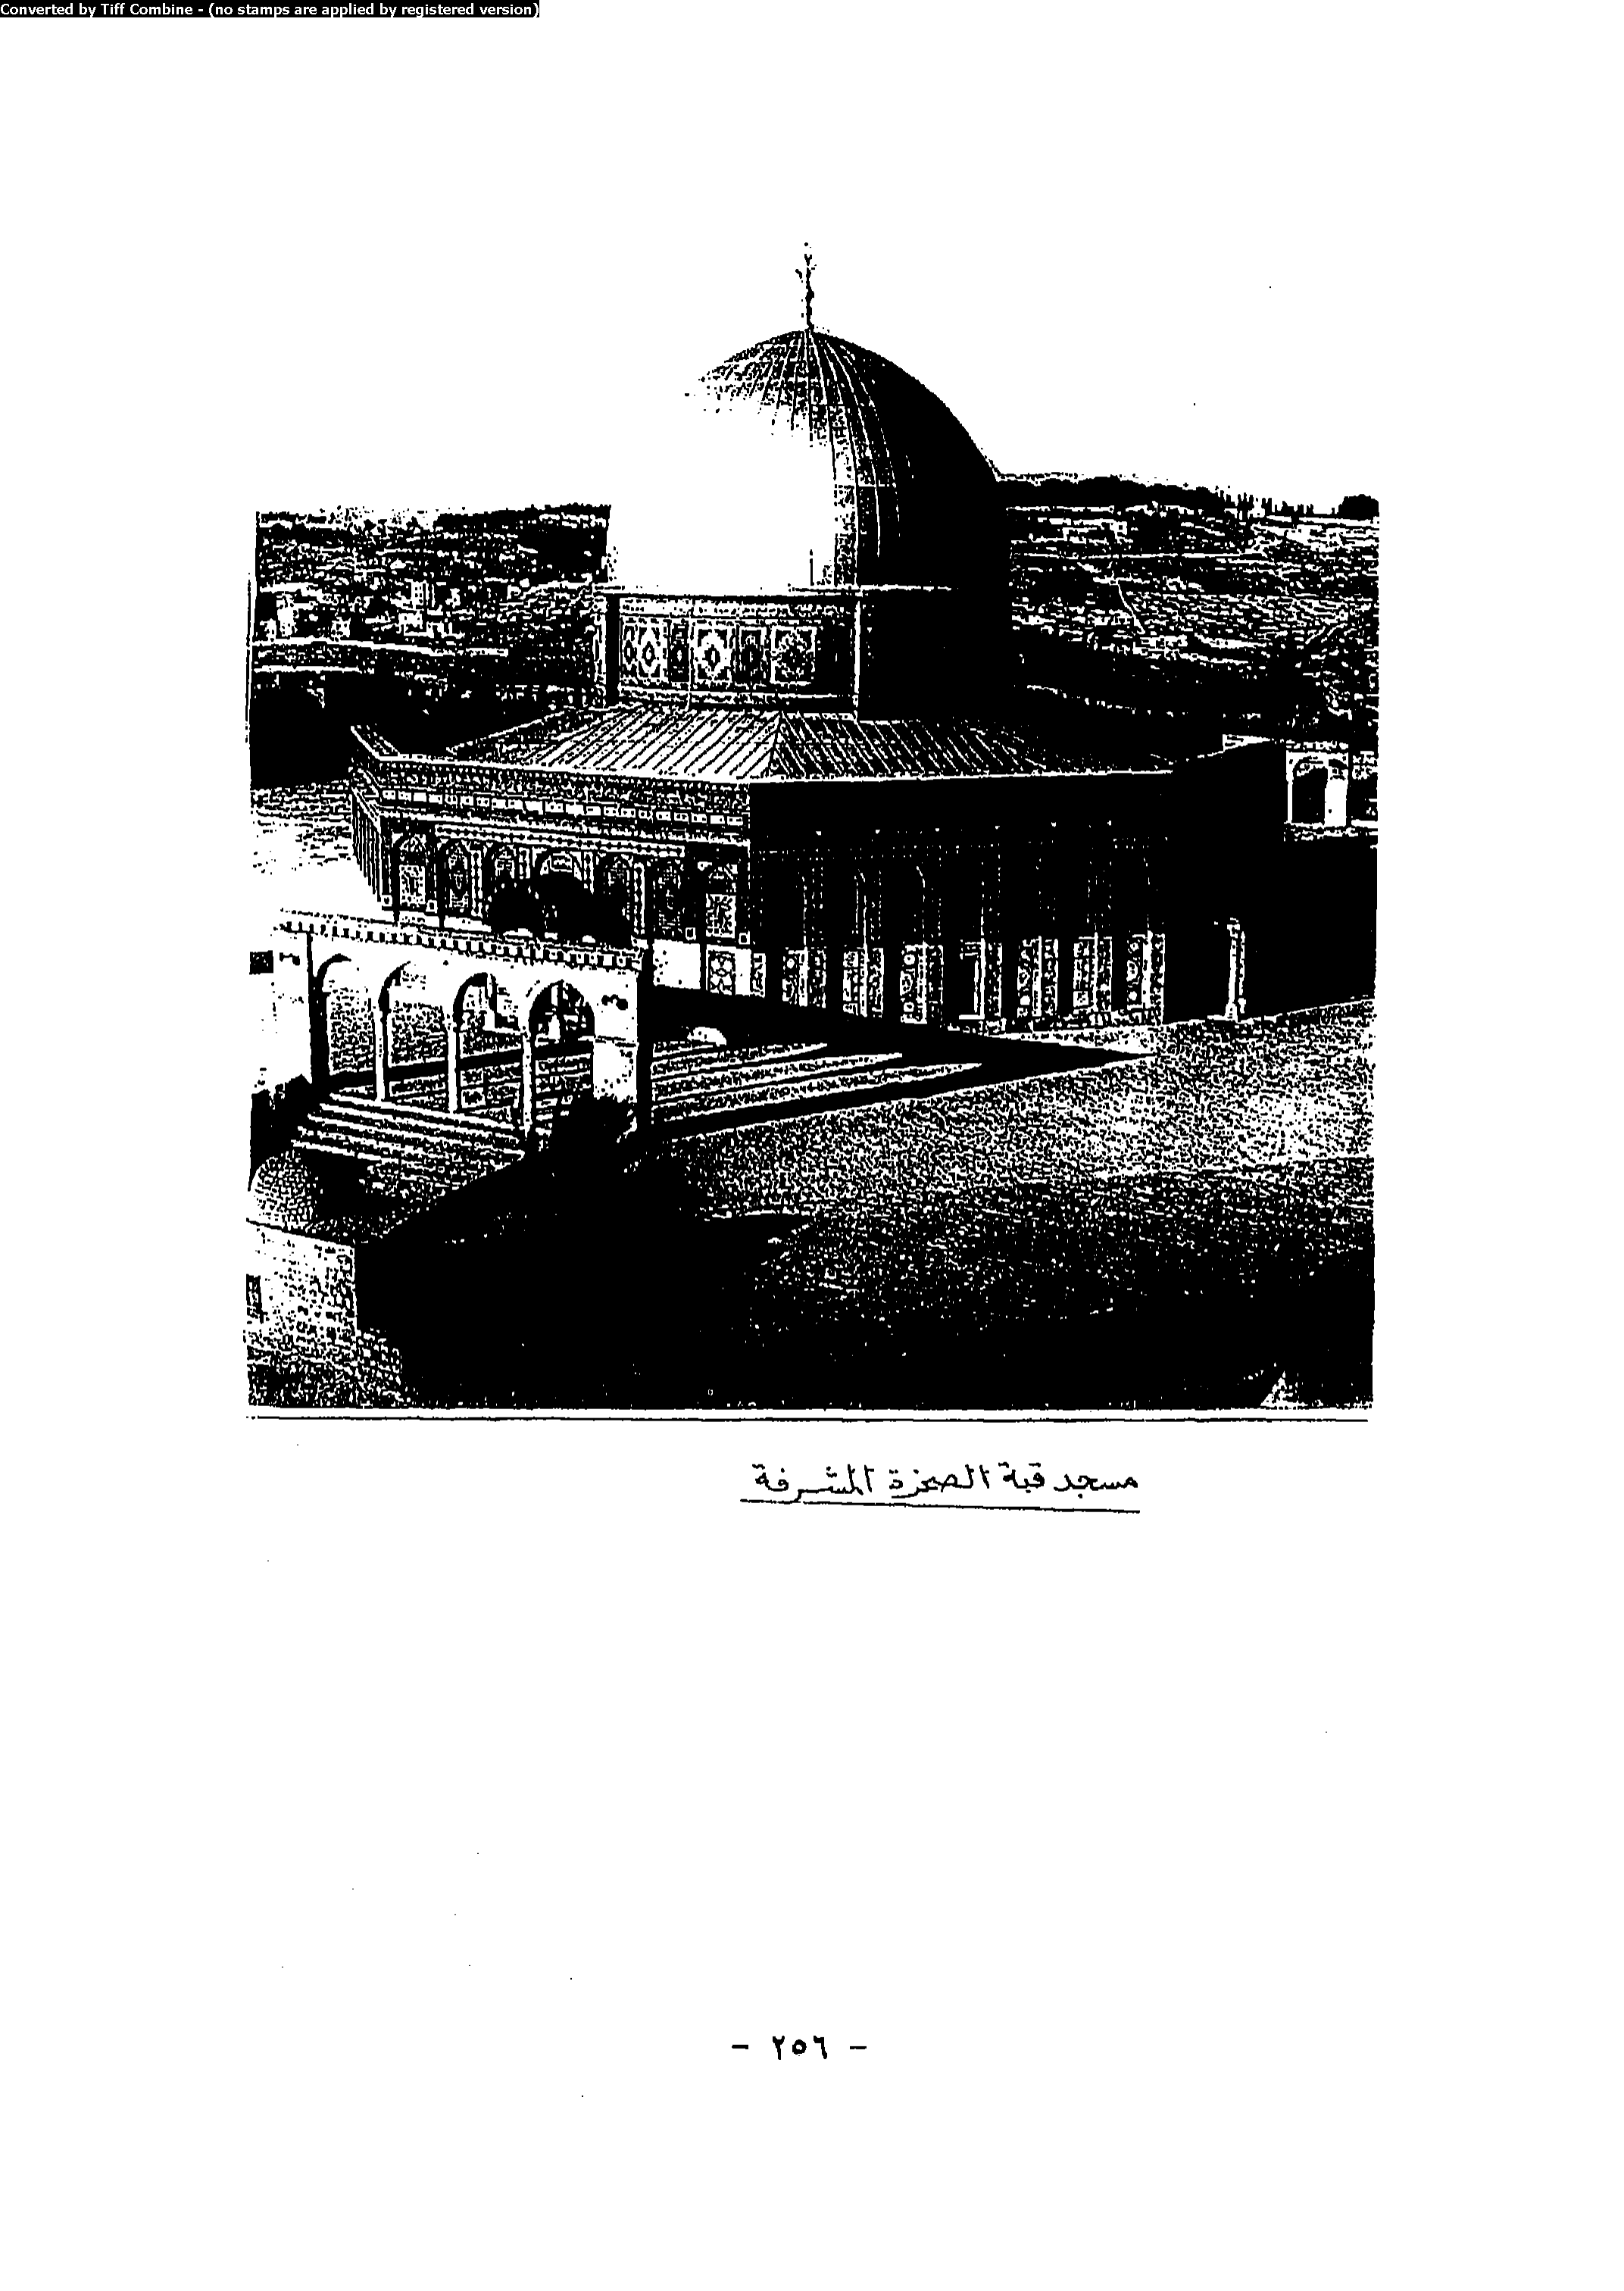 Converted by Tiff Combine - (no stamps are applied by registered version)
مسجد قبة الصخرة المشرفة
- ٢٥٦ -